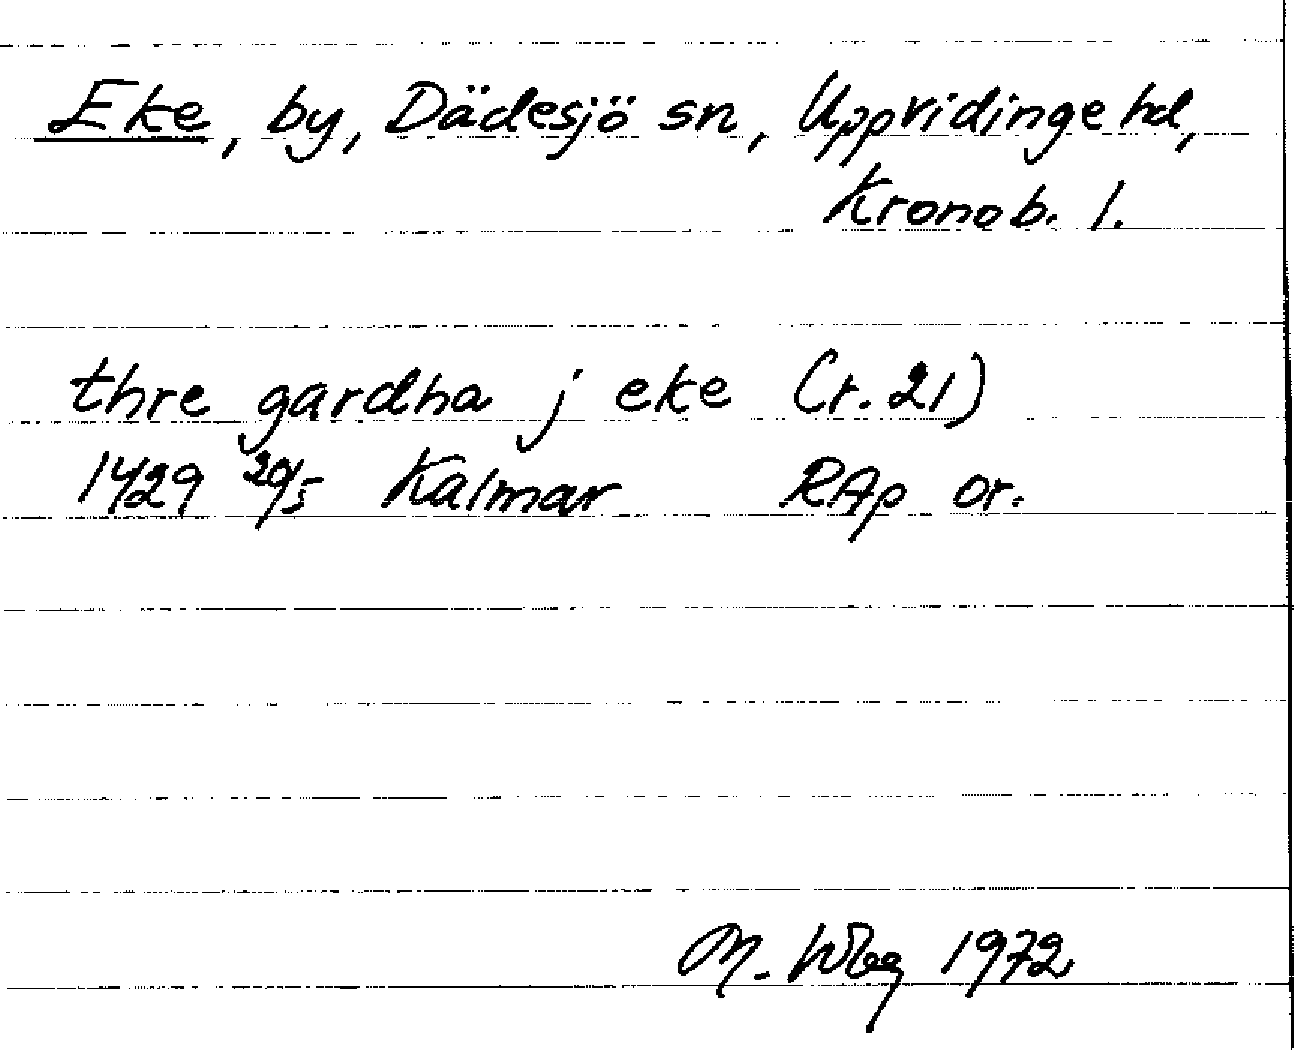 Eke, by, Dädesjö sn, Uppvidinge hd,
Kronob. l.
thre gardha j eke (r. 21)
1429 29/5 Kalmar RAp or.
M. 1972